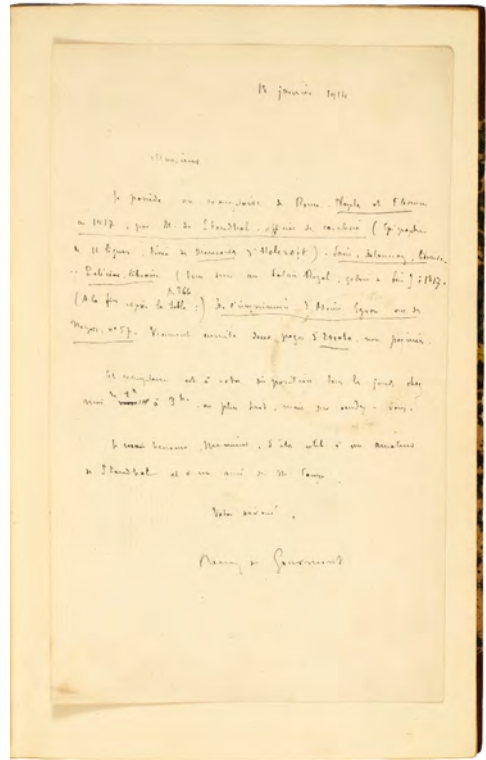 14 janvier 1914
Monsieur
Je possède un exemplaire de Rome, Naples et Florence
en 1817, par M. de Stendhal, officier de cavalerie (Epigraphe
de 11 lignes, tirée de Memoirs d'Holcroft). Paris, Delaunay, libraire,
Pelicier, libraire (tous deux au Palais Royal, galerie de bois) 1817.
p. 366
(A la fin après la table :) De l'imprimerie d'Adrien Egron rue des
Noyers, n° 37. Viennent ensuite deux pages d'Errata, non
Cet exemplaire est à votre disposition tous les jours chez
moi de 2h à 3h, au plus tard, mais sur rendez-vous.
Je serai heureux, Monsieur, d'être utile à un amateur
de Stendhal et à un ami de M.
Votre dévoué,
Remy de Gourmont